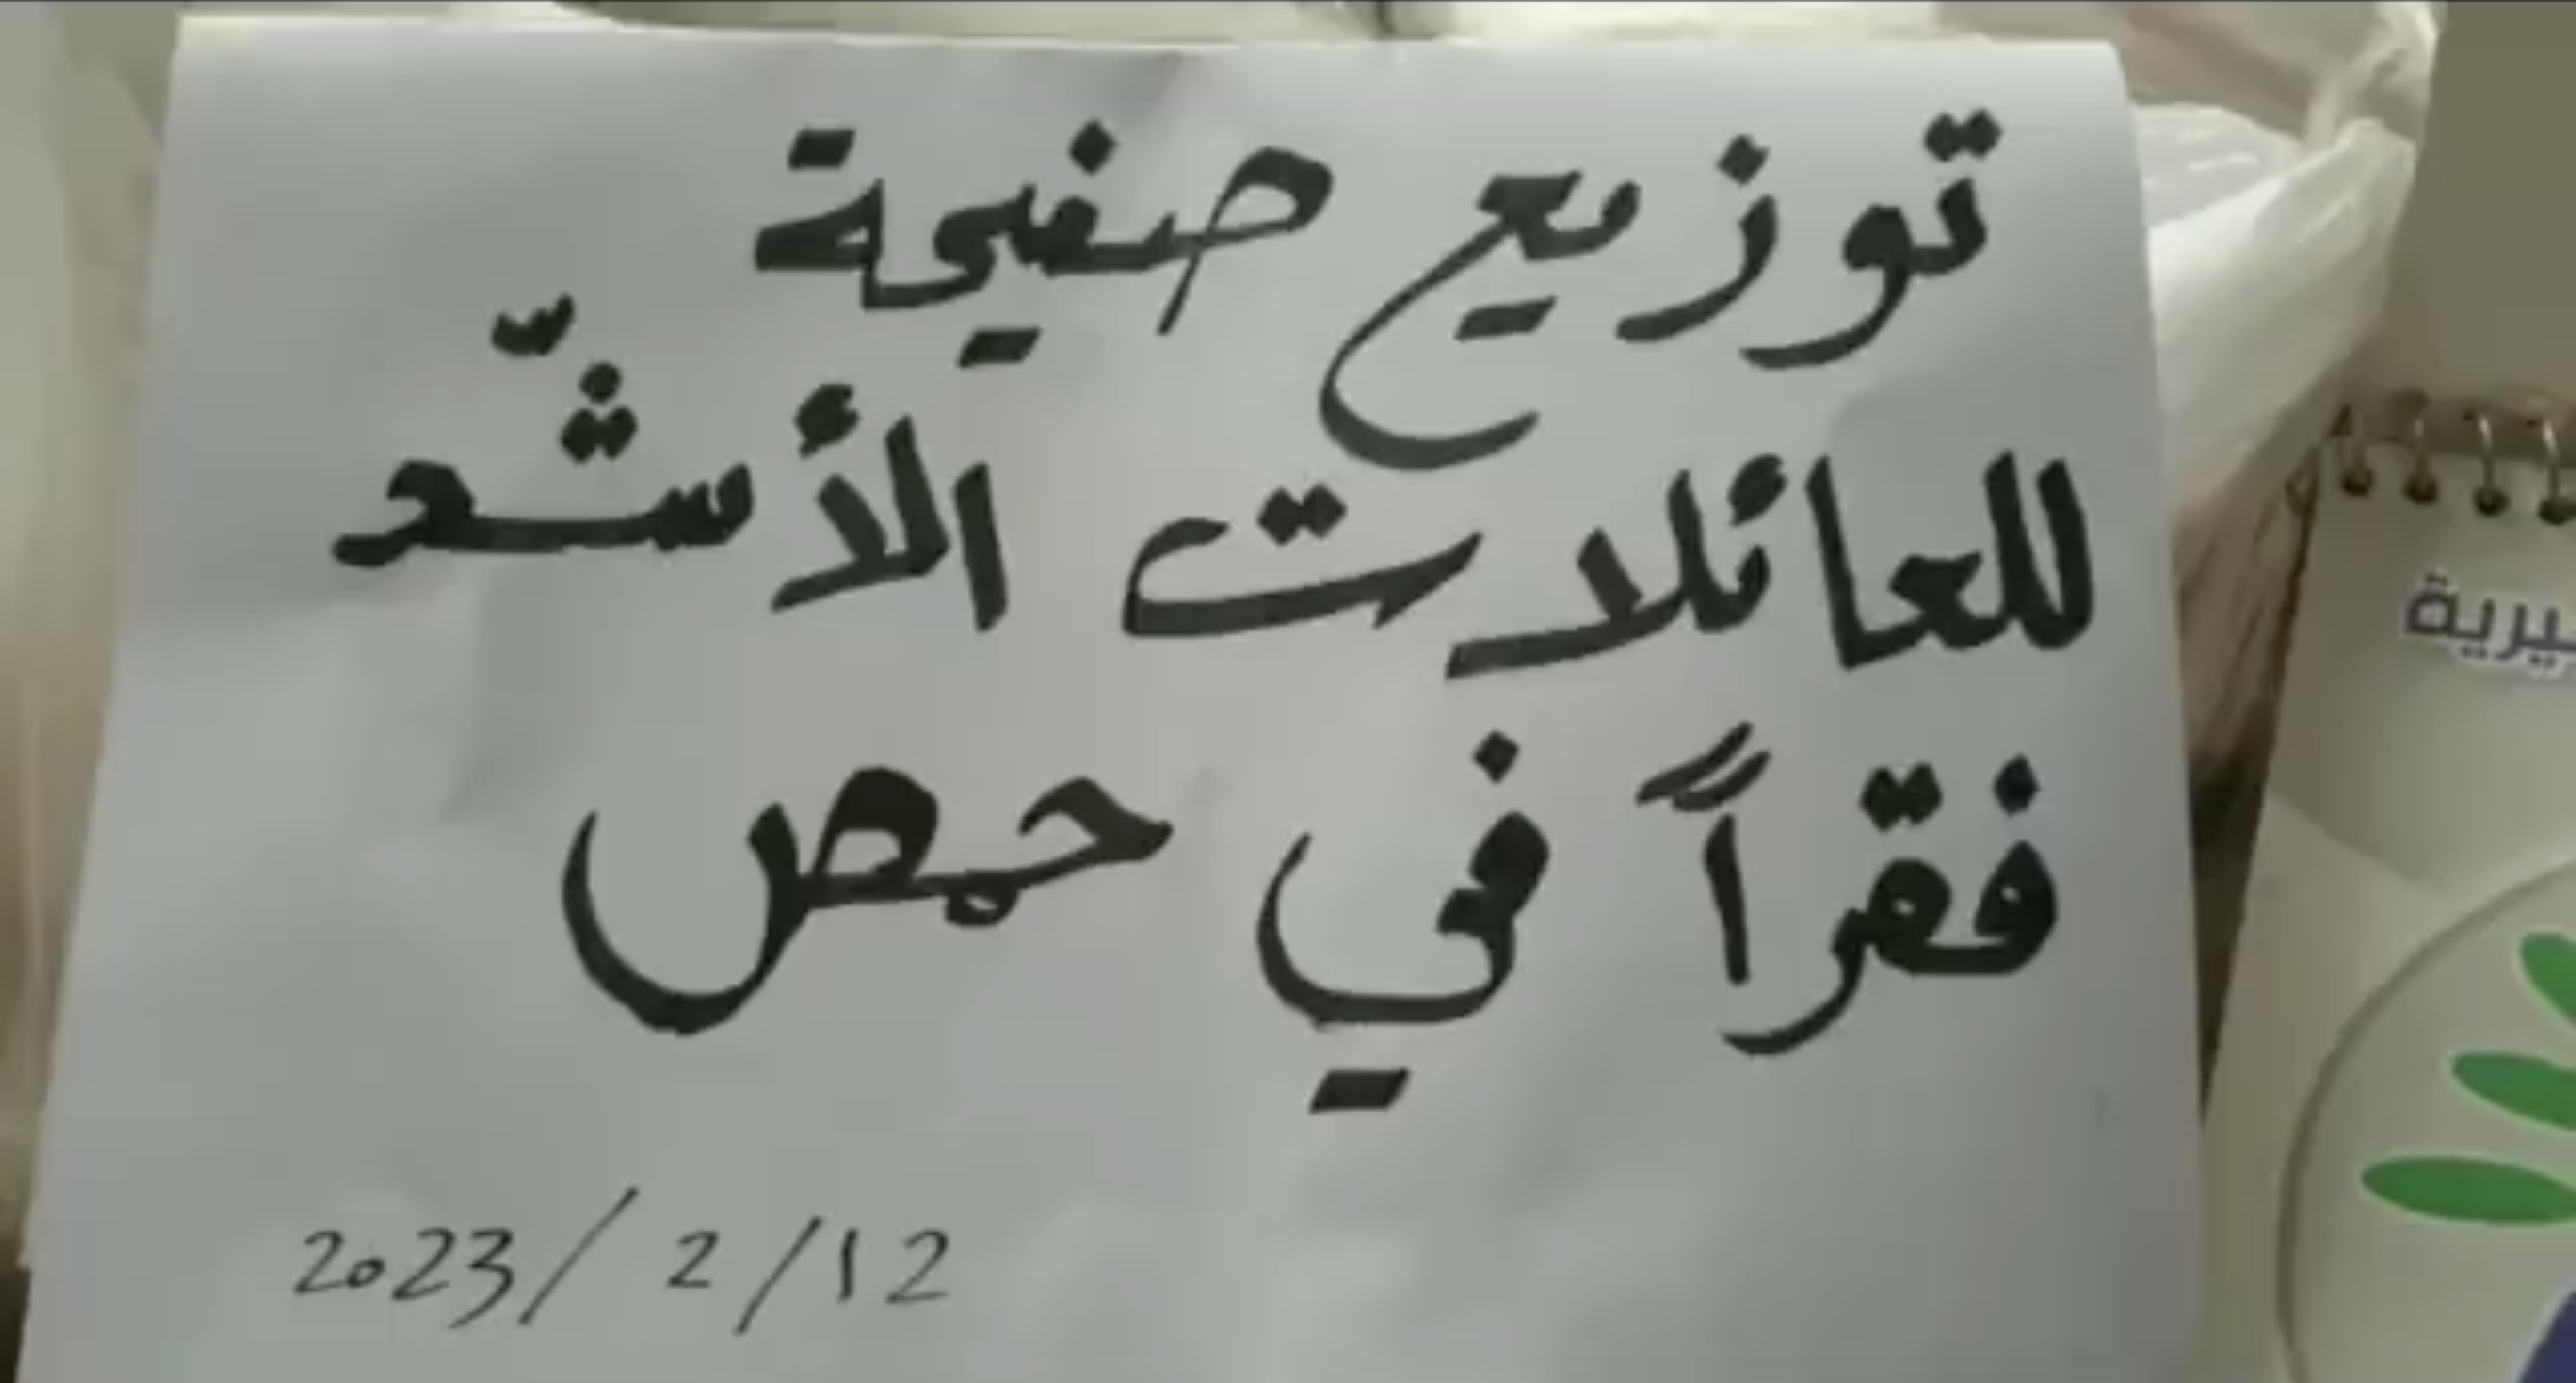 توزيع صفيحة
للعائلات الأشدّ
فقراً في حمص
2023/2/12